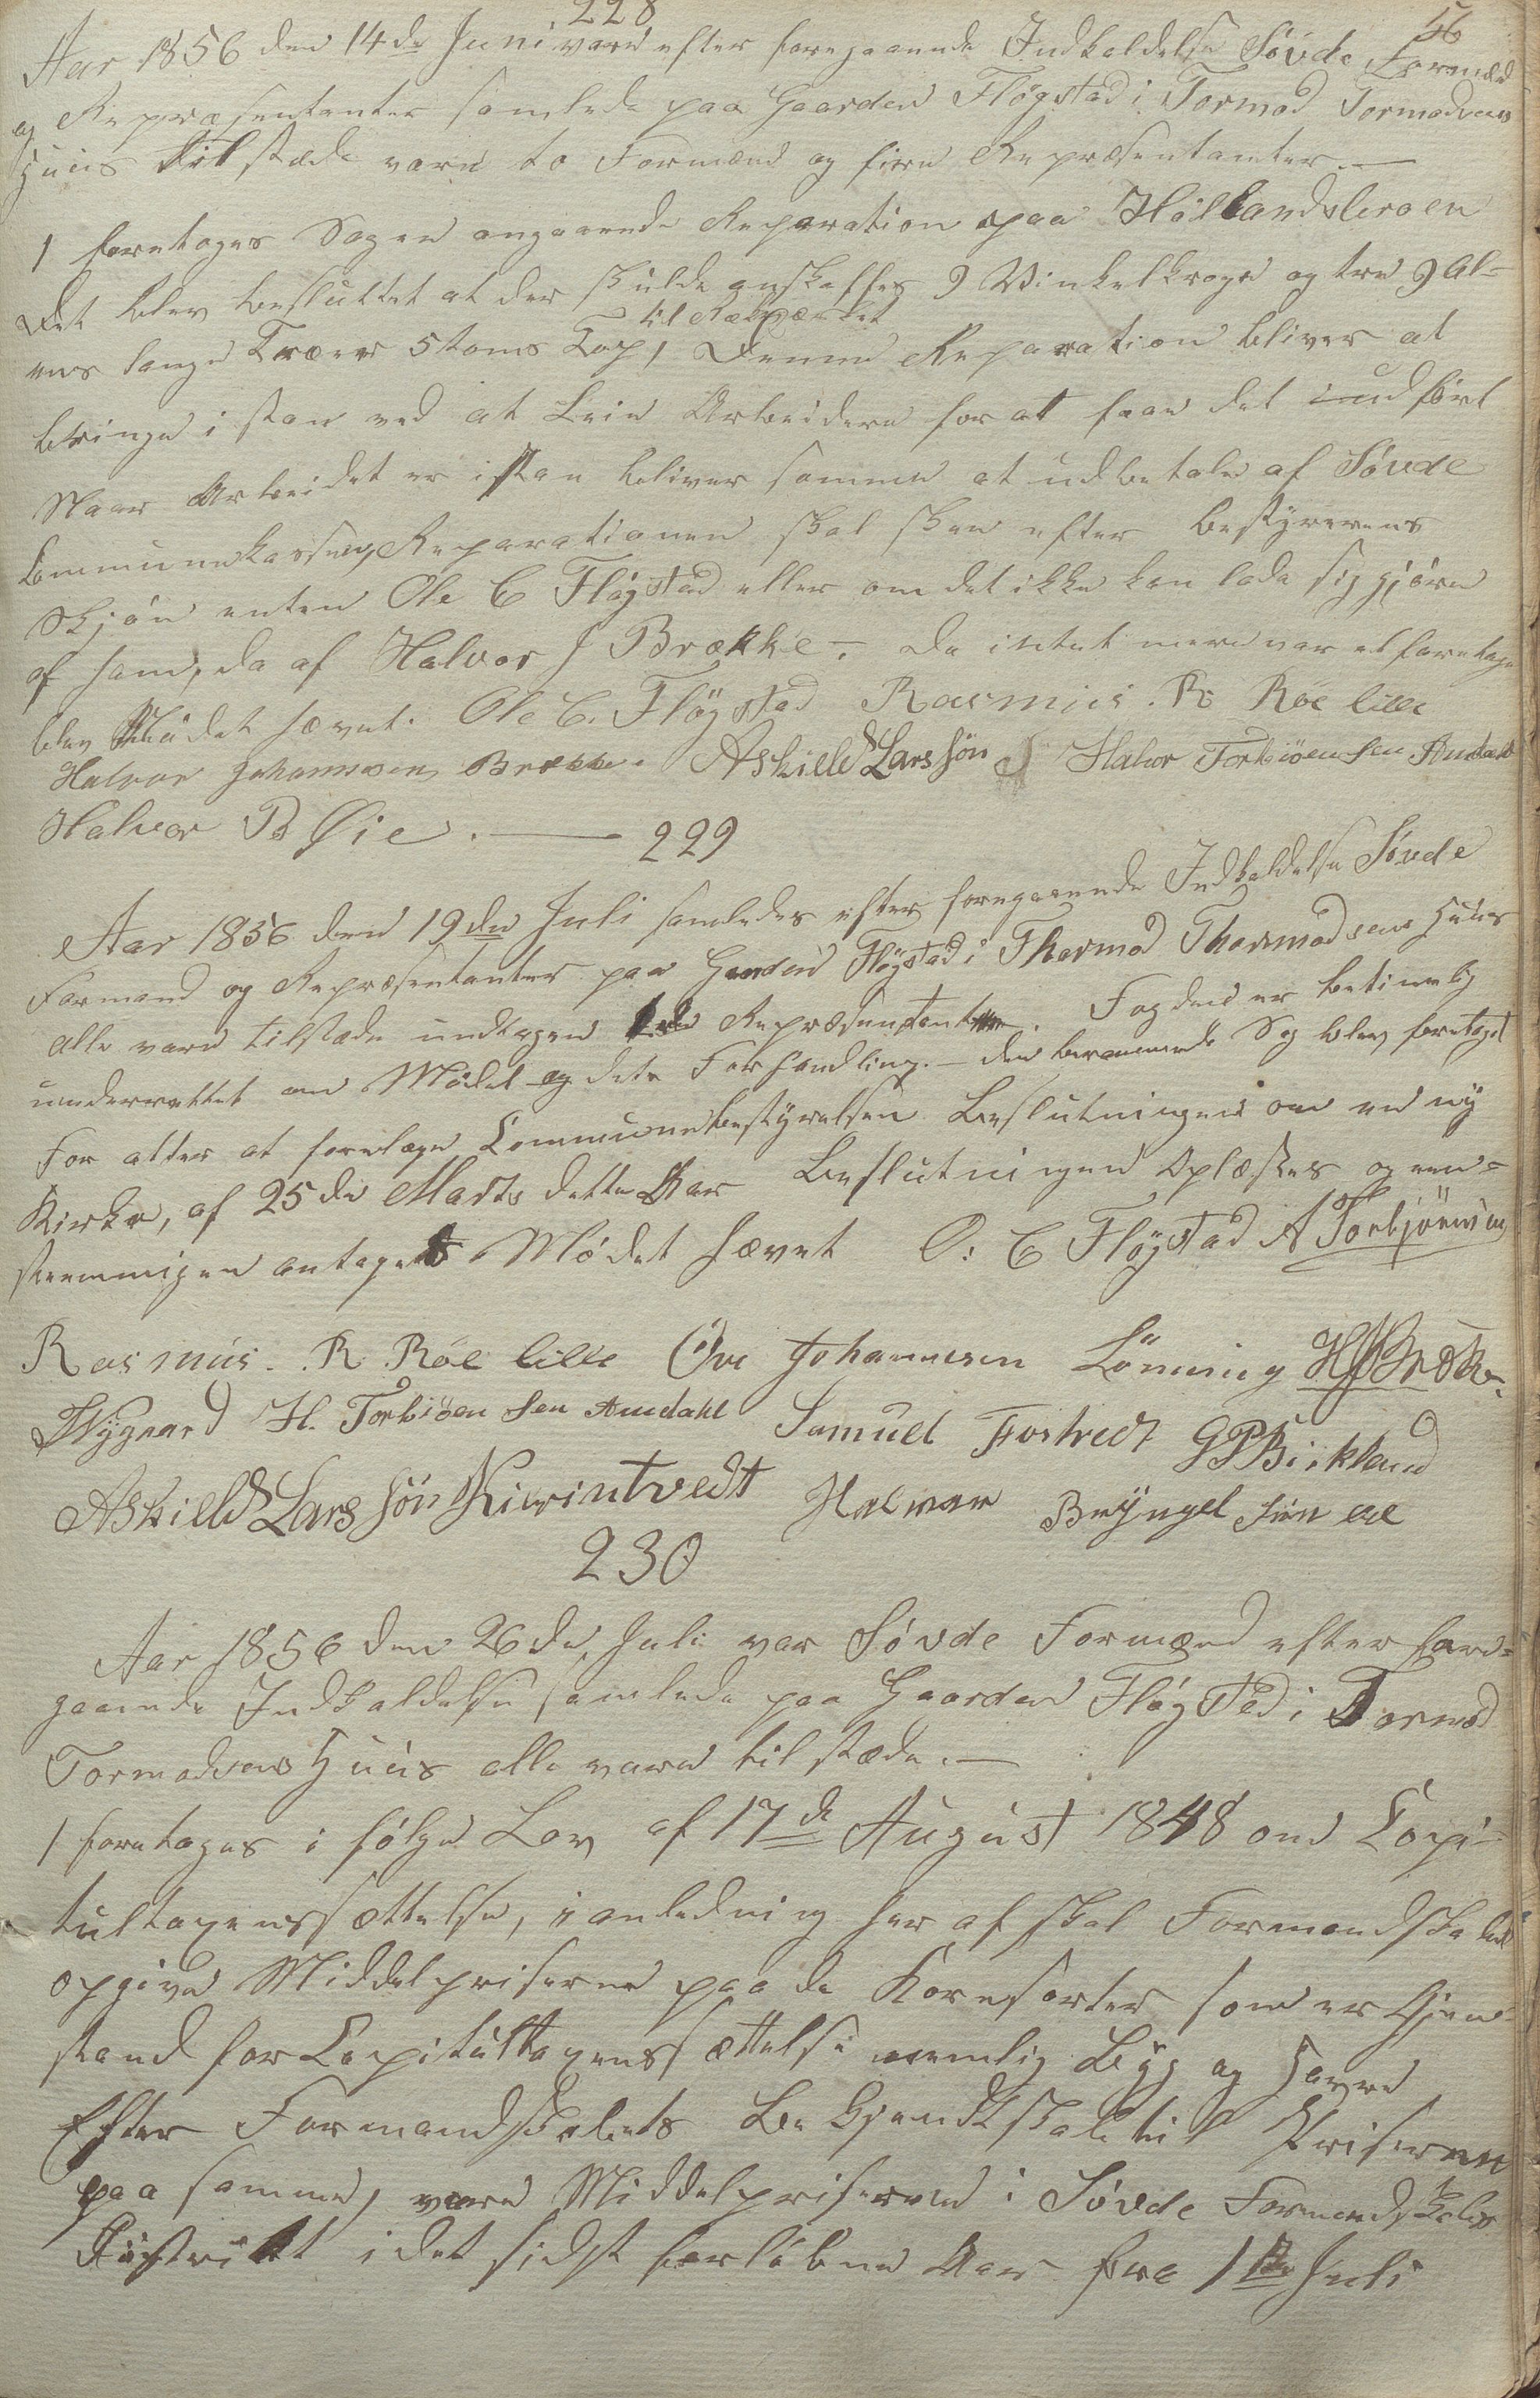 228
56
Aar 1856 den 14de Juni vare efter foregaaende Indkaldelse Søvde Formænd
og Repræsentanter samlede paa Gaarden Fløgstad i Tormod Tormodsens
Huus tilstæde vare to Formænd og fiire Repræsentanter. —
1 foretoges Sagen angaaende Reparation paa Høllandsbroen
Det blev besluttet at der skulde anskaffes 9 Vinkelkroge og tre 9 Al=
til Rækværket
ens lange Træer 5 toms Top, Denne Reparation bliver at
bringe i stan ved at Leie Arbeidere for at faae det udført
Naar Arbeidet er istan bliver samme at udbetale af Søvde
Communekasse, Reparationen skal skee efter bestyrerens
Skjøn enten Ole C Fløgstad eller om det ikke kan lade sig gjøre
af ham, da af Halvor J Brække. — Da intet mere var at foretage
blev Mødet hævet. Ole C. Fløgstad Rasmus. R. Röe lille
Halvor Johannesen Brække. Askield Lars søn Halvor Torbiöensen Amdahl
Halvor B Øie. — 229
Aar 1856 den 19de Juli samledes efter foregaaende Indkaldelse Søvde
Formænd og Repræsentanter paa Gaarden Fløgstad i Thormod Thormodsens Huus
alle vare tilstæde undtagen Repræsentant. Fogden er betimelig
underrettet om Mødet og dets Forhandling. — den berammede Sag blev foretaget
For atter at forelæge Communebestyrelsen Beslutningen om en ny
Kirke, af 25de Marts dette Aar Beslutningen Oplæstes og een=
stemmigen antoges Mødet hævet O: C Fløgstad A Torbjörnsen
Rasmus. R. Röe lille Ove Johannesen Lönning HJBrække.
Nygaard H. Torbiöensen Amdahl Samuel Fostvedt GPBirkland
Askield Lars søn Kvintvedt Halvor Bryngelsøn
230
Aar 1856 den 26de Juli var Søvde Formænd efter fore=
gaaende Indkaldelse samlede paa Gaarden Fløgstad i Tormod
Tormodsens Huus alle vare tilstæde. —
1 foretoges i følge Lov af 17de August 1848 om Capi=
tultagenssættelse, i anledning her af skal Formandskabet
opgive Middelpriserne paa de Kornsorter som er Gjen=
stand for Capitultagenssættelse nemlig Byg og Havre
Efter Formandskabets Bekjendtskab til Priserne
paa samme, vare Middelpriserne i Søvde Formandskabs
Distrikt i det sidst forløbne Aar fra 1ste Juli